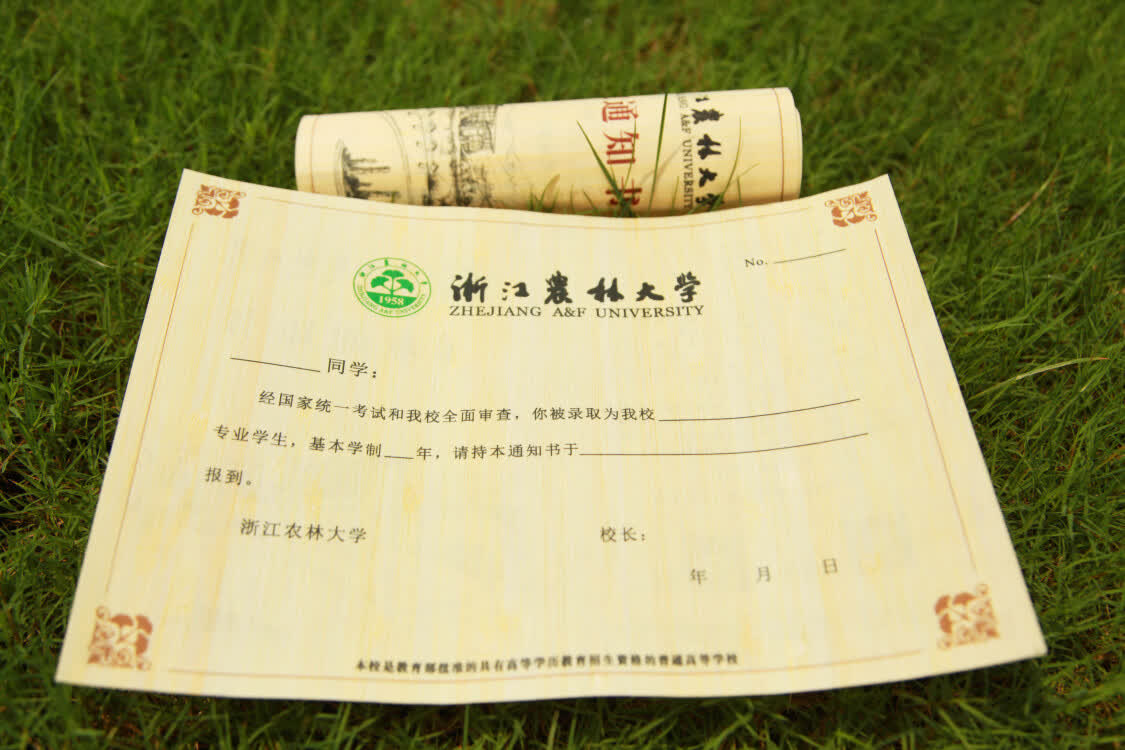 通知书
江农林大学
NG A&F UNIVERSITY
No.
浙江农林大学
ZHEJIANG A&F UNIVERSITY
浙江农林大学
1958
ZHEJIANG A&F UNIVERSITY
同学：
经国家统一考试和我校全面审查，你被录取为我校
专业学生，基本学制年，请持本通知书于
报到。
浙江农林大学 校长：
年 月 日
本校是教育部批准的具有高等学历教育招生资格的普通高等学校